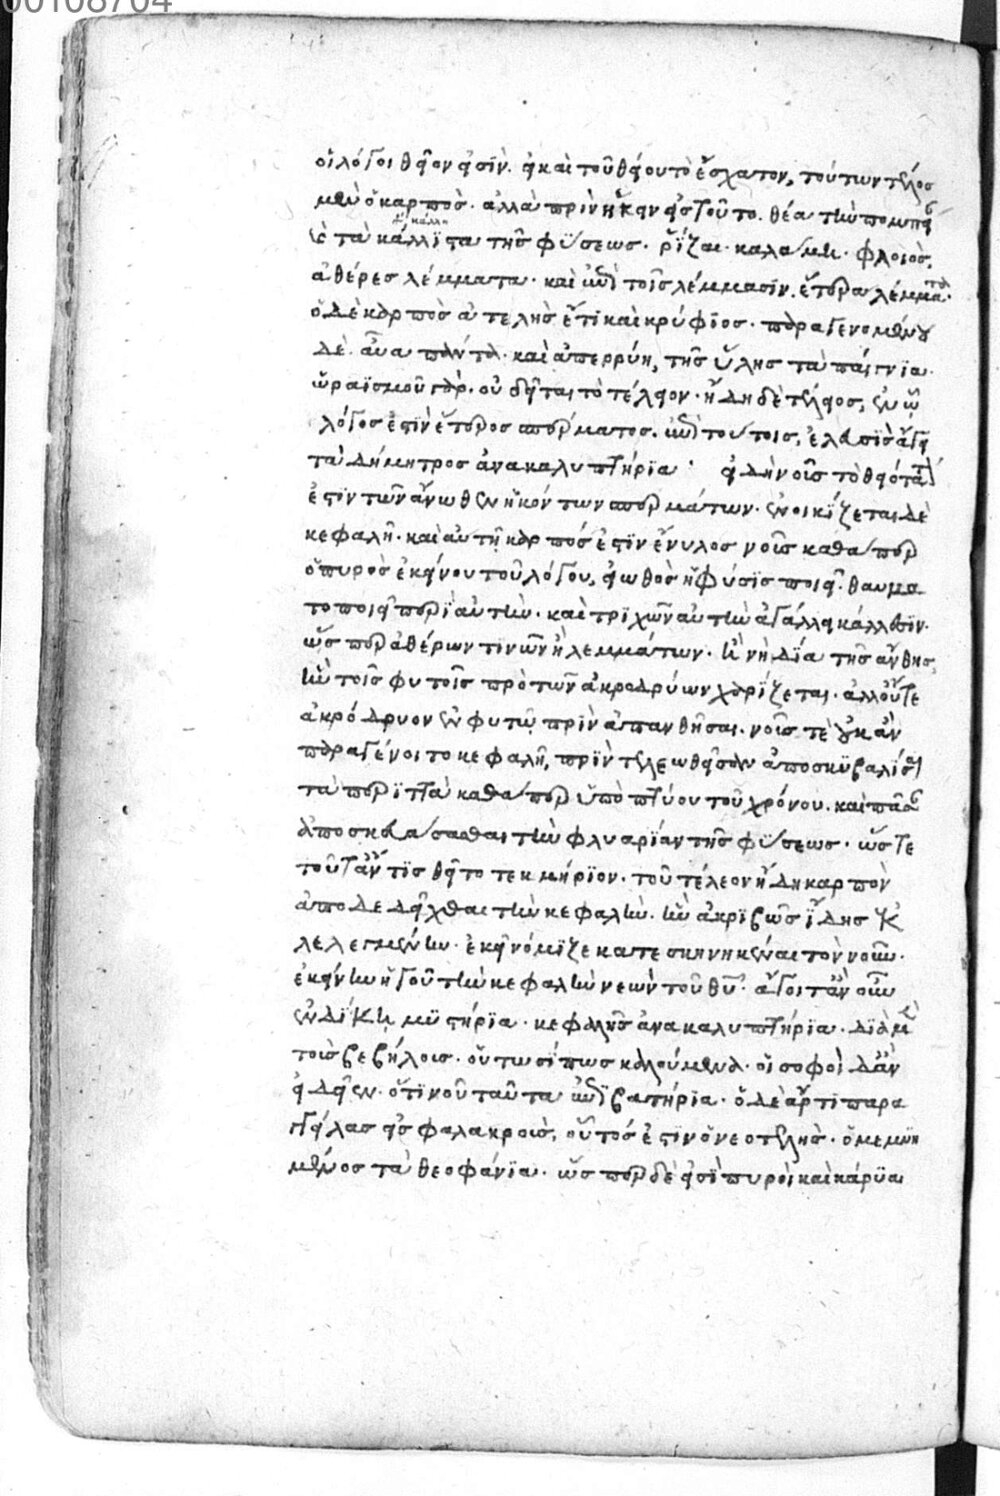 00108704
οἱ λόγοι θεῖον εἰσὶν. εἰ καὶ τοῦ θείου τὸ ἔσχατον, τούτων τέλος
μὲν ὁ καρπὸς. ἀλλὰ πρὶν ἥκειν εἰς τοῦτο. θέα τὴν πομπεί
τὰ κάλλιστα τῆς φύσεως. ῥίζαι. καλάμη. φλοιὸς.
ἀθέρες λέμματα. καὶ ἐπὶ τοῖς λέμμασιν. ἕτερα λέμματα.
ὁ δὲ καρπὸς ἀτελὴς ἔτι καὶ κρύφιος. παραγενομένου
δὲ. αὖα πάντα. καὶ ἀπερρύη, τῆς ὕλης τὰ παίγνια.
ὡραϊσμοῦ γὰρ. οὐ δεῖται τὸ τέλειον. ἤδη δὲ τέλειος, ἐν ᾧ
λόγος ἐστὶν ἑτέρος σπέρματος. ἐπὶ τούτοις, ἐλευσὶς ἄγει
τὰ Δήμητρος ἀνακαλυπτήρια. εἰ δὴ νοῦς τὸ θειότατον
ἐστὶν τῶν ἄνωθεν ἡκόντων σπερμάτων. ἐνοικίζεται δὲ
κεφαλῆ. καὶ αὐτὴ καρπός ἐστὶν ἔνυλος νοῦς καθάπερ
ὁ πυρὸς ἐκείνου τοῦ λόγου, εἴωθος ἡ φύσις ποιεῖ. θαυμα
τοποιεῖ περὶ αὐτὴν. καὶ τριχῶν αὐτὴν ἀγάλλει κάλλεσιν.
ὥσπερ ἀθέρων τινῶν ἢ λεμμάτων. ἢ νὴ δία τῆς ἄνθης,
ἣν τοῖς φυτοῖς πρὸ τῶν ἀκροδρύων χαρίζεται. ἀλλ' οὔτε
ἀκρόδρυον ἐν φυτῷ πρὶν ἀπανθῆσαι. νοῦς τὲ οὐκ ἂν
παραγένοιτο κεφαλῆ, πρὶν τελεωθεῖσαν ἀποσκυβαλίσαι
τὰ περιττὰ καθάπερ ὑπὸ πτύου τοῦ χρόνου. καὶ πᾶσαν
ἀποσκευάσασθαι τὴν φλυαρίαν τῆς φύσεως. ὥστε
τοῦτ' ἄν τις θεῖτο τεκμήριον. τοῦ τέλεον ἤδη καρπὸν
ἀποδεδεῖχθαι τὴν κεφαλὴν. ἣν ἀκριβῶς ἴδης
λελεγμένην. ἐκεῖ νόμιζε κατεσκηνηκέναι τὸν νοῦν.
ἐκείνην ἡγοῦ τὴν κεφαλὴν νεὼν τοῦ θυ. ἄγοιτ' ἂν οὖν
ἐνδίκη μυστήρια. κεφαλῆς ἀνακαλυπτήρια. διὰ μὲν
τοὺς βεβήλοις. οὕτωσί πως καλούμενα. οἱ σοφοὶ δ' ἂν
εἰδεῖεν. ὅτι νοῦ ταῦτα ἐπιβατήρια. ὁ δὲ ἄρτι παρα
γγείλας εἰς φαλακροὺς, οὗτός ἐστιν ὁ νεοτελὴς. ὁ μεμυη
μένος τὰ θεοφάνια. ὥσπερ δὲ εἰσὶ πυροὶ καὶ κάρυα